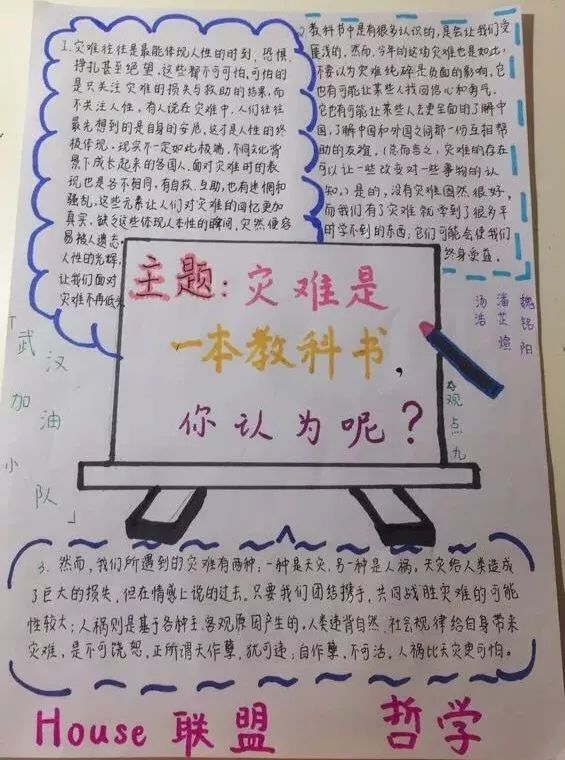 1. 灾难往往是最能体现人性的时刻, 恐惧、
挣扎甚至绝望, 这些都不可怕, 可怕的
是只关注灾难的损失与救助的结果, 而
不关注人性, 有人说在灾难中, 人们往往
最先想到的是自身的安危, 这才是人性的终
极体现。现实不一定如此极端, 不同文化背
景下成长起来的各国人, 面对灾难时的表
现也是各不相同, 有自救, 互助, 也有
骚乱, 这些元素让人们对灾难的回忆更加
真实, 缺乏这些体现人本性的瞬间, 灾难便容
易被人遗忘
人性的光辉
让我们面对
灾难不再低
2. 教科书中是有很多认识的, 是会让我们受
匪浅的, 然而, 今年的这场灾难也是如此:
不要以为灾难纯碎是负面的影响, 它
也有可能让某些人找回信心和勇气,
它也有可能让某些人去更全面的了解中
国, 了解中国和外国之间那一份互相帮
助的友谊, (总而言之, 灾难的存在
可以让一些改变对一些事物的认
知,) 是的, 没有灾难固然很好,
而我们有了灾难就学到了很多平
时学不到的东西; 它们可能会使我们
终身受益.
主题: 灾难是
一本教科书,
你认为呢?
「武汉加油小队」
魏铭阳
潘芷煊
汤浩
☆观点九
3. 然而, 我们所遇到的灾难有两种: 一种是天灾, 另一种是人祸, 天灾给人类造成
了巨大的损失, 但在情感上说的过去。只要我们团结携手, 共同战胜灾难的可能
性较大; 人祸则是基于各种主、客观原因产生的, 人类违背自然、社会规律给自身带来
灾难, 是不可饶恕, 正所谓天作孽, 犹可违; 自作孽, 不可活, 人祸比天灾更可怕。
House 联盟 哲学